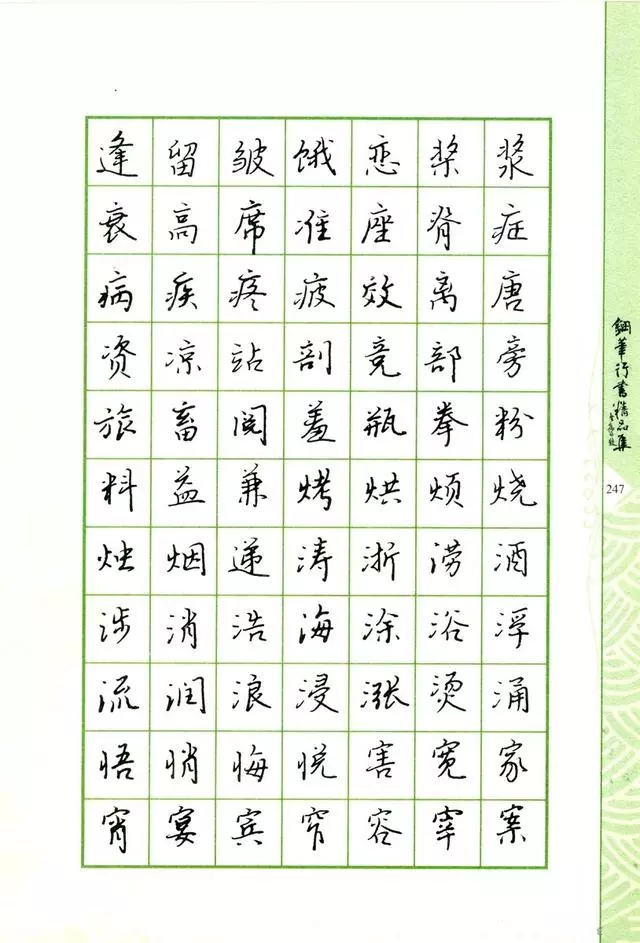 逢留皱饿恋桨浆
衰高席准座脊症
病疾疼疲效离唐
资凉站剖竞部旁
旅畜阅羞瓶拳粉
料益兼烤烘烦烧
烛烟递涛浙涝酒
涉消浩海涂浴浮
流润浪浸涨烫涌
悟悄悔悦害宽家
宵宴宾窄容宰案
钢笔行书精品集
247